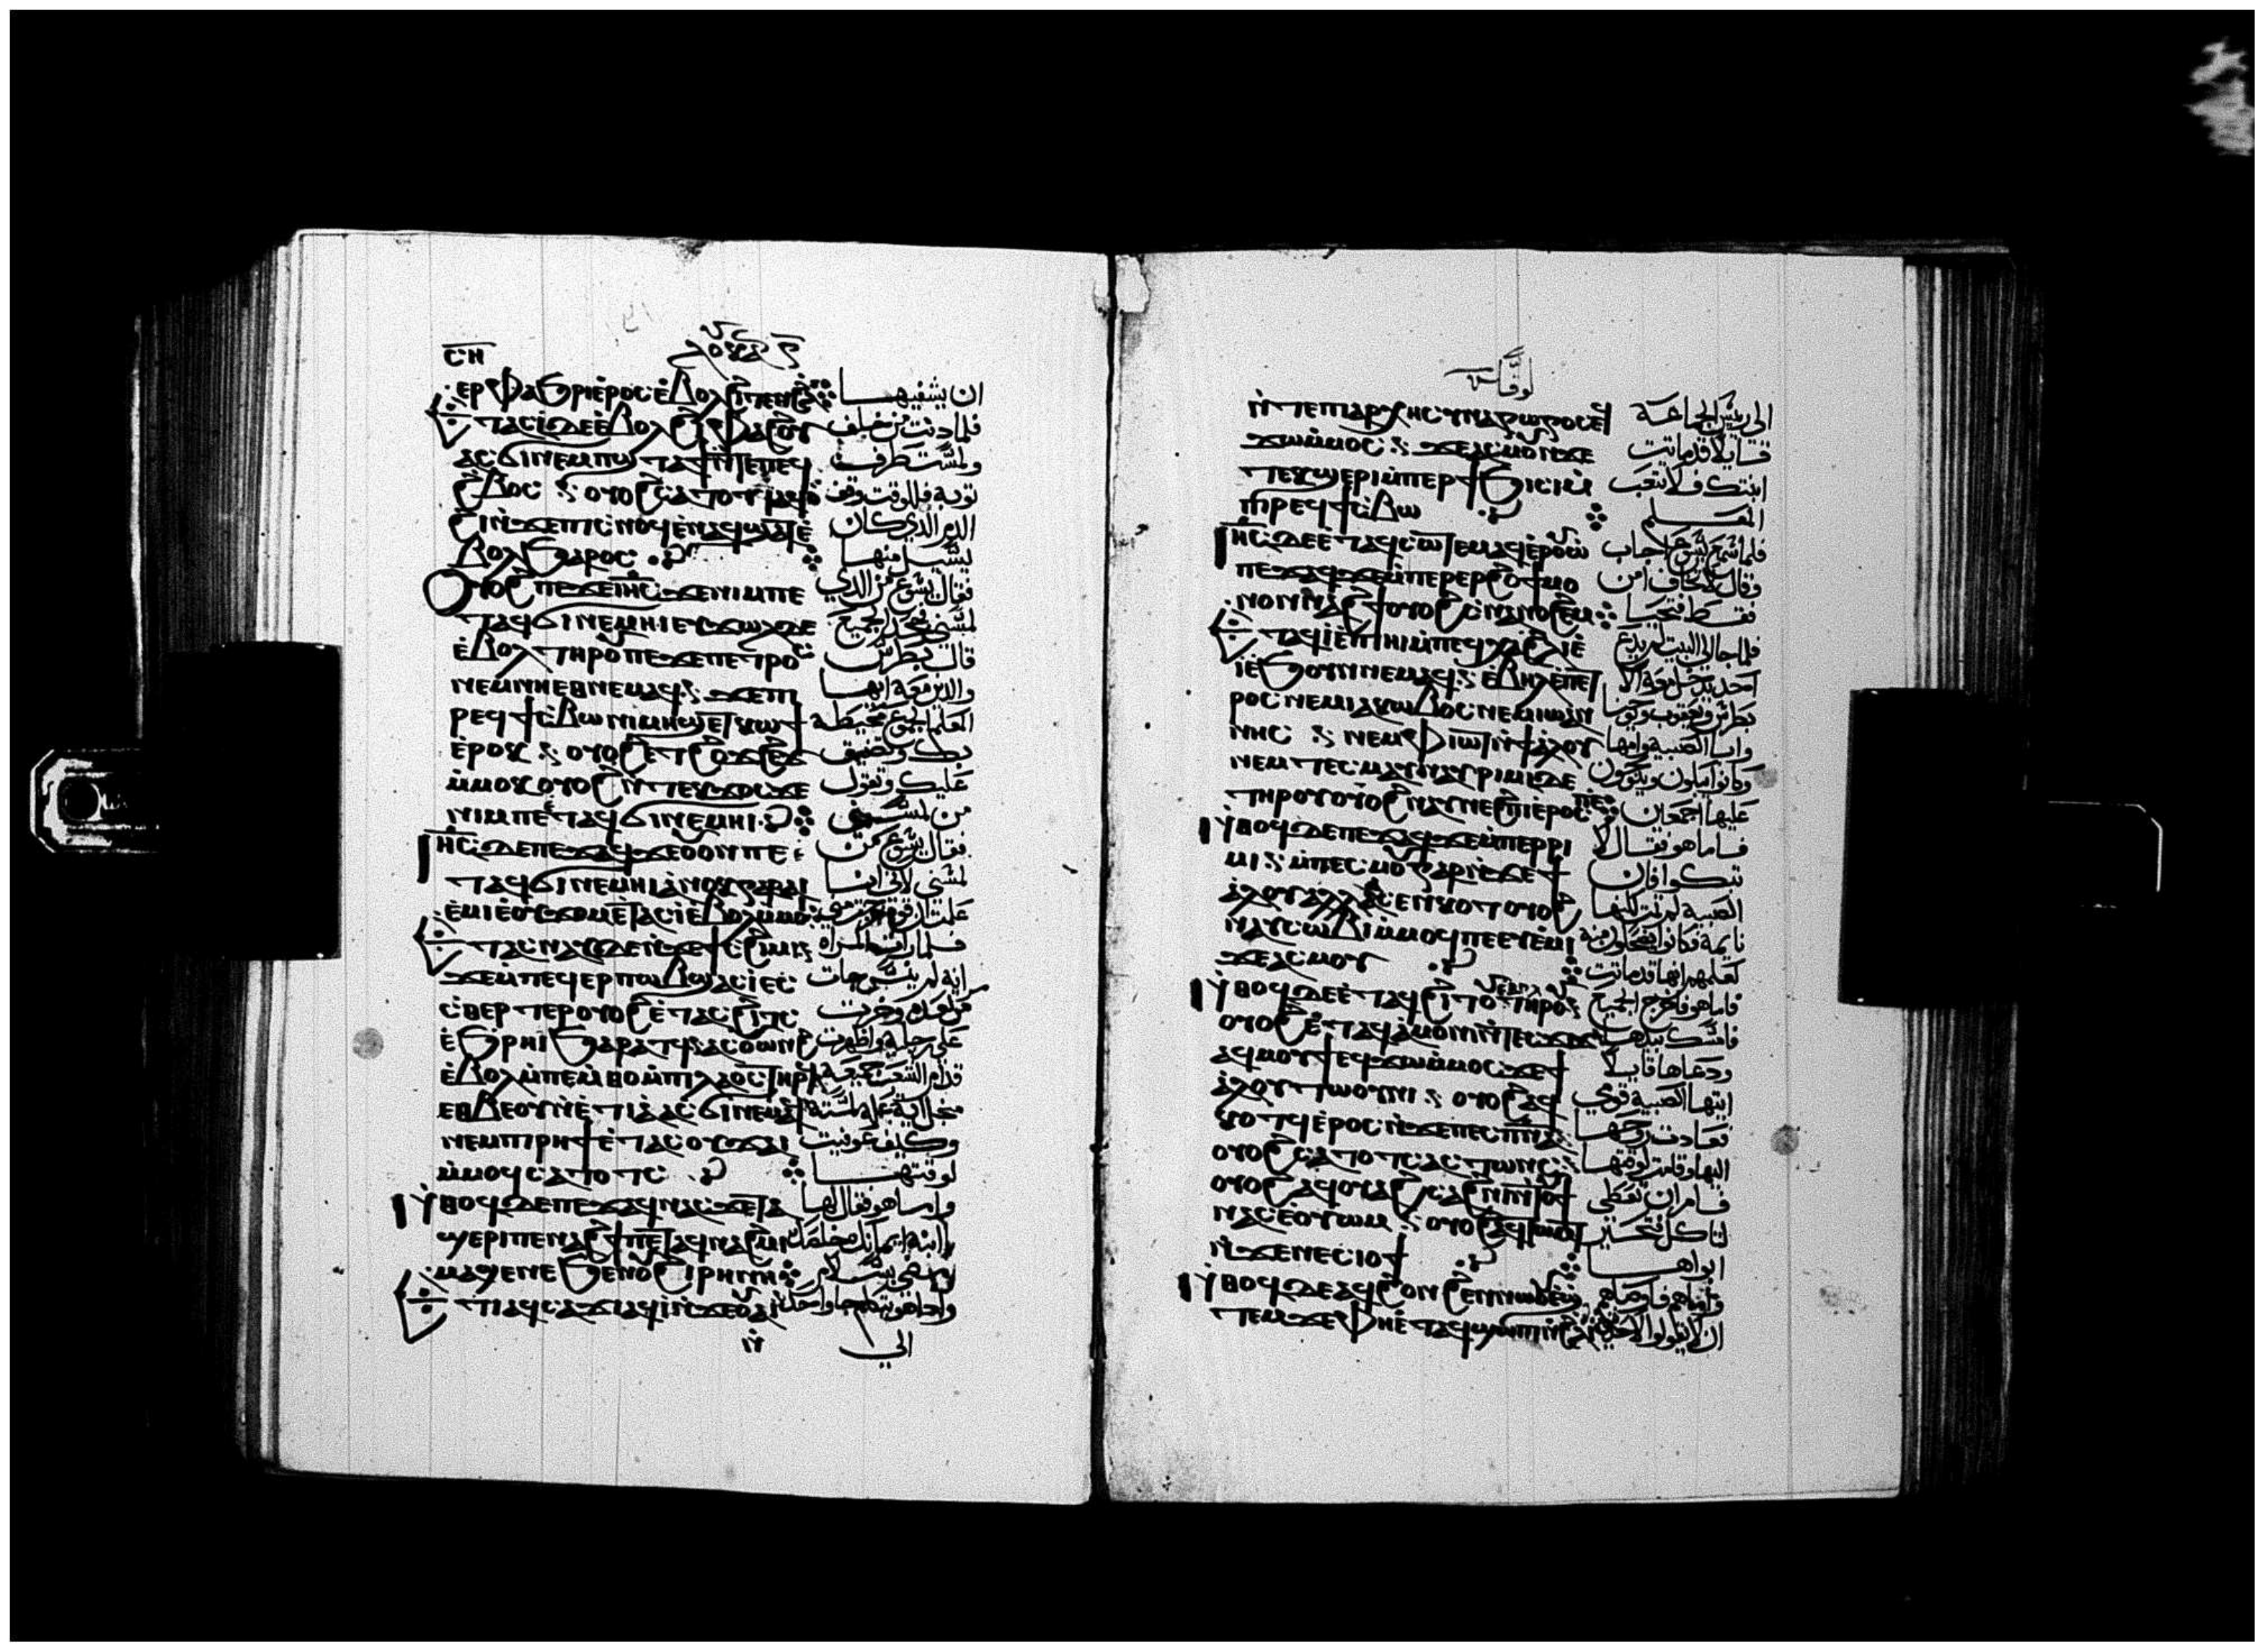 ⲥⲏ
ⲉⲣⲫⲁϧⲣⲓ ⲉ̀ⲣⲟⲥ ⲉ̀ⲃⲟⲗ
ⲧⲁⲥⲓ̀ ⲇⲉ ⲉ̀ⲃⲟⲗ ϩⲓ ⲫⲁϩⲟⲩ
ⲁⲥϭⲓ ⲛⲉⲙ ⲡϣⲧⲁϯ ⲛ̀ⲧⲉ ⲡⲉϥ
ϩⲃⲟⲥ : ⲟⲩⲟϩ ⲥⲁⲧⲟⲧϥ ⲁϥⲟ̀
ϩⲓ ⲛ̀ϫⲉ ⲡⲓⲥⲛⲟϥ ⲉ̀ⲛⲁϥϣⲁϯ ⲉ̀
ⲃⲟⲗ ϧⲁⲣⲟⲥ
Ⲟⲩⲟϩ ⲡⲉϫⲉ ⲓⲏⲥ ϫⲉ ⲛⲓⲙ ⲡⲉ
ⲧⲁϥϭⲓ ⲛⲉⲙⲏⲓ ⲉⲩϫⲱⲗ ⲇⲉ
ⲉ̀ⲃⲟⲗ ⲧⲏⲣⲟⲩ ⲡⲉϫⲉ ⲡⲉⲧⲣⲟⲥ
ⲛⲉⲙ ⲛⲏⲉⲑⲛⲉⲙⲁϥ : ϫⲉ ⲡⲓ
ⲣⲉϥϯⲥ̀ⲃⲱ ⲛⲓⲙⲏϣ ⲉⲧϩⲱϯ
ⲉ̀ⲣⲟⲕ : ⲟⲩⲟϩ ⲉⲧϩⲟϫϩⲉϫ
ⲙ̀ⲙⲟⲕ ⲟⲩⲟϩ ⲛ̀ⲧⲉⲕϫⲟⲥ ϫⲉ
ⲛⲓⲙ ⲡⲉⲧⲁϥϭⲓ ⲛⲉⲙⲏⲓ
ⲓⲏⲥ ⲇⲉ ⲡⲉϫⲁϥ ϫⲉ ⲟⲩⲟⲛ ⲡⲉ
ⲧⲁϥϭⲓ ⲛⲉⲙⲏⲓ ⲁ̀ⲛⲟⲕ ⲅⲁⲣ ⲁⲓ
ⲉ̀ⲙⲓ ⲉ̀ⲟⲩϫⲟⲙ ⲉⲧⲁⲥⲓ̀ ⲉ̀ⲃⲟⲗ ⲙ̀ⲙⲟⲓ
ⲧⲁⲥⲛⲁⲩ ⲇⲉ ⲛ̀ϫⲉ ϯⲥϩⲓⲙⲓ
ϫⲉ ⲙ̀ⲡⲉϥⲉⲣⲡⲱⲃϣ ⲁⲥⲓ̀ ⲉⲥ
ⲥ̀ⲑⲉⲣⲧⲉⲣ ⲟⲩⲟϩ ⲉ̀ⲧⲁⲥϩⲓⲧⲥ
ⲉ̀ϧⲣⲏⲓ ϧⲁⲣⲁⲧϥ ⲁⲥⲟⲩⲱⲛϩ
ⲉ̀ⲃⲟⲗ ⲙ̀ⲡⲉⲙ̀ⲑⲟ ⲙ̀ⲡⲓⲗⲁⲟⲥ ⲧⲏⲣϥ
ⲉⲑⲃⲉ ⲟⲩⲛ ⲉ̀ⲧⲓⲁ̀ ⲁⲥϭⲓ ⲛⲉⲙⲁϥ
ⲛⲉⲙ ⲡⲓⲣⲏϯ ⲉ̀ⲧⲁⲥⲟⲩϫⲁⲓ
ⲙ̀ⲙⲟϥ ⲥⲁⲧⲟⲧⲥ
Ⲛⲑⲟϥ ⲇⲉ ⲡⲉϫⲁϥ ⲛⲁⲥ ϫⲉ ⲧⲁ
ϣⲉⲣⲓ ⲡⲉⲛⲁϩϯ ⲡⲉⲧⲁϥⲛⲁϩⲙⲓ
ⲙⲁϣⲉ ⲛⲉ ϧⲉⲛ ⲟⲩϩⲓⲣⲏⲛⲏ
ⲧⲓ ⲁϥⲥⲁϫⲓ ⲁϥⲓ̀ ⲛ̀ϫⲉ ⲟⲩⲁⲓ
ⲛ̀
ان يشفيها
فلما دنت من خلف
ولمست طرف
ثوبه فللوقت وقف
الدم الذي كان
يسيل منها
فقال يسوع من الذي
لمسني فجحد الجميع
قال بطرس
والذين معه ايها
المعلم الجموع محيطة
بك وتضيق
عليك وتقول
من لمسني
فقال يسوع من
لمسني لاني انا
علمت ان قوة خرجت مني
فلما رات المراة
انه لم ينس جات
مرتعدة وخرت
على رجليه واظهرت
قدام الشعب جميعه
من اجل اية علة لمسته
وكيف عوفيت
لوقتها
واما هو فقال لها
يا ابنة ايمانك خلصك
امضي بسلام
الي
لوقا
ⲛ̀ⲧⲉ ⲡⲓⲁⲣⲭⲏⲥⲩⲛⲁⲅⲱⲅⲟⲥ ⲉϥ
ϫⲱ ⲙ̀ⲙⲟⲥ : ϫⲉ ⲁⲥⲙⲟⲩ ⲛ̀ϫⲉ
ⲧⲉⲕϣⲉⲣⲓ ⲙ̀ⲡⲉⲣϯϧⲓⲥⲓ ⲙ̀
ⲡⲓⲣⲉϥϯⲥ̀ⲃⲱ
ⲓⲏⲥ ⲇⲉ ⲉ̀ⲧⲁϥⲥⲱⲧⲉⲙ ⲁϥⲉ̀ⲣⲟⲩⲱ̀
ⲡⲉϫⲁϥ ϫⲉ ⲙ̀ⲡⲉⲣⲉⲣϩⲟϯ ⲙⲟ
ⲛⲟⲛ ⲛⲁϩϯ ⲟⲩⲟϩ ⲥⲛⲁⲛⲟϩⲉⲙ
ⲧⲁϥⲓ̀ ⲉ̀ⲡⲓⲏⲓ ⲙ̀ⲡⲉϥⲭⲁ ϩⲗⲓ ⲉ̀
ⲓ̀ ⲉ̀ϧⲟⲩⲛ ⲛⲉⲙⲁϥ : ⲉ̀ⲃⲏⲗ ⲉ̀ⲡⲉⲧ
ⲣⲟⲥ ⲛⲉⲙ ⲓⲁⲕⲱⲃⲟⲥ ⲛⲉⲙ ⲓⲱⲁⲛ
ⲛⲏⲥ : ⲛⲉⲙ ⲫⲓⲱⲧ ⲛ̀ϯⲁ̀ⲗⲟⲩ
ⲛⲉⲙ ⲧⲉⲥⲙⲁⲩ ⲛⲁⲩⲣⲓⲙⲓ ⲇⲉ
ⲧⲏⲣⲟⲩ ⲟⲩⲟϩ ⲛⲁⲩⲛⲉϩⲡⲓ ⲉ̀ⲣⲟⲥ ⲡⲉ
Ⲛⲑⲟϥ ⲇⲉ ⲡⲉϫⲁϥ ϫⲉ ⲙ̀ⲡⲉⲣⲣⲓ
ⲙⲓ : ⲙ̀ⲡⲉⲥⲙⲟⲩ ⲅⲁⲣ ⲛ̀ϫⲉ ϯ
ⲁ̀ⲗⲟⲩ ⲁⲗⲗⲁ ⲁⲥⲉⲛⲕⲟⲧ ⲟⲩⲟϩ
ⲛⲁⲩⲥⲱⲃⲓ ⲙ̀ⲙⲟϥ ⲡⲉ ⲉⲩⲉ̀ⲙⲓ
ϫⲉ ⲁⲥⲙⲟⲩ
Ⲛⲑⲟϥ ⲇⲉ ⲉ̀ⲧⲁϥϩⲓⲧⲟⲩ ⲧⲏⲣⲟⲩ
ⲟⲩⲟϩ ⲉ̀ⲧⲁϥⲁ̀ⲙⲟⲛⲓ ⲛ̀ⲧⲉⲥϫⲓϫ
ⲁϥⲙⲟⲩϯ ⲉϥϫⲱ ⲙ̀ⲙⲟⲥ ϫⲉ ϯ
ⲁ̀ⲗⲟⲩ ⲧⲱⲟⲩⲛⲓ : ⲟⲩⲟϩ ⲁϥ
ⲕⲟⲧϥ ⲉ̀ⲣⲟⲥ ⲛ̀ϫⲉ ⲡⲉⲥⲡⲛⲁ
ⲟⲩⲟϩ ⲥⲁⲧⲟⲧⲥ ⲁⲥⲧⲱⲛⲥ
ⲟⲩⲟϩ ⲁϥⲟⲩⲁϩⲥⲁϩⲛⲓ ⲛ̀ϯ
ⲛⲁⲥ ⲉ̀ⲟⲩⲱⲙ : ⲟⲩⲟϩ ⲁⲩⲧⲱⲙⲧ
ⲛ̀ϫⲉ ⲛⲉⲥⲓⲟϯ
Ⲛⲑⲟϥ ⲇⲉ ⲁϥϩⲟⲛϩⲉⲛ ⲛⲱⲟⲩ
ⲧⲉⲙ ϫⲉ ⲫⲏⲉ̀ⲧⲁϥϣⲱⲡⲓ ⲛ̀ϩⲗⲓ
الى ريس الجماعة
قايلا قد ماتت
ابنتك فلا تتعب
المعلم
فلما سمع يسوع اجاب
وقال لا تخاف امن
فقط فتحيا
فلما جا الى البيت لم يدع
احد يدخل معه الا
بطرس ويعقوب ويوحنا
وابا الصبية وامها
وكانوا يبكون وينوحون
عليها اجمعين
فاما هو فقال لا
تبكوا فان
الصبية لم تمت لكنها
نايمة فكانوا يضحكون منه
لعلمهم انها قد ماتت
فاما هو فاخرج الجميع
فامسك بيدها
ودعاها قايلا
ايتها الصبية قومي
فعادت روحها
اليها وقامت لوقتها
فامر ان تعطى
لتاكل فتحير
ابواها
واما هو فاوصاهم
ان لا يقولوا لاحد